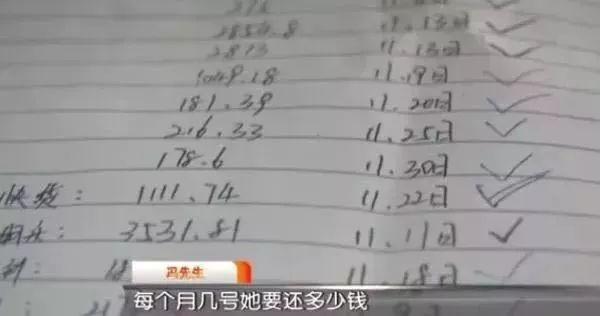 2854.8 11.13日
2813 11.13日
1049.18 11.19日
181.39 11.20日
216.33 11.25日
178.6 11.30日
快货: 1111.74 11.22日
3531.81 11.11日
11.18日
冯先生
每个月几号她要还多少钱